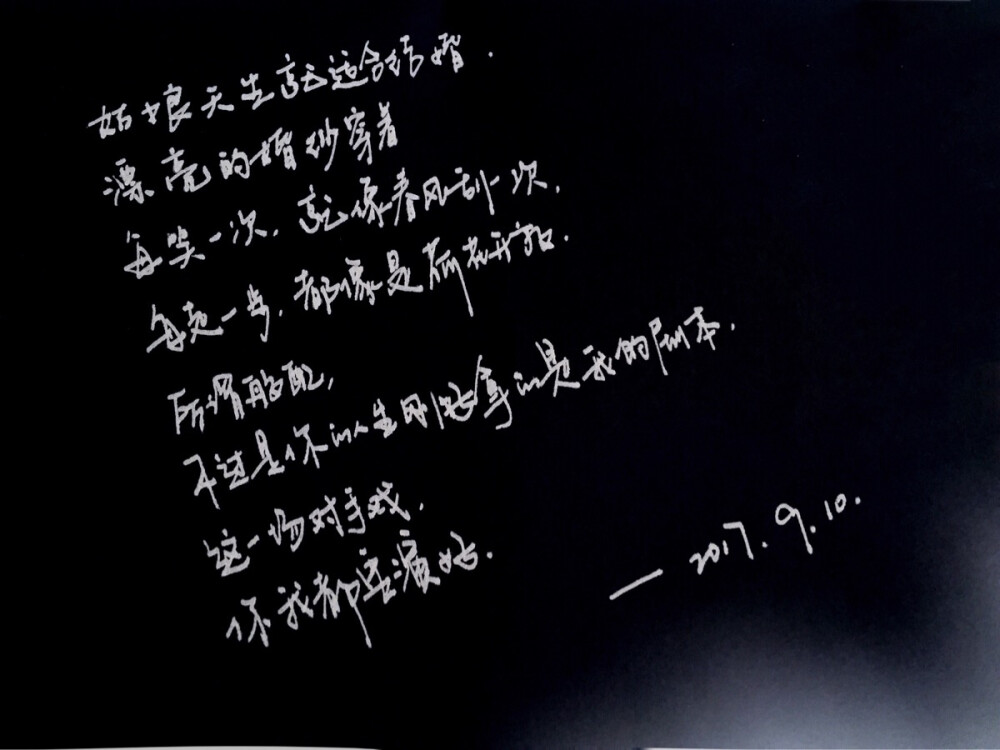 姑娘天生就适合结婚.
漂亮的婚纱穿着
每笑一次,就像春风刮一次,
每走一步,都像是荷花开始.
所谓般配,
不过是你的人生刚好拿的是我的剧本,
这一场对手戏,
你我都要演好.
— 2017.9.10.